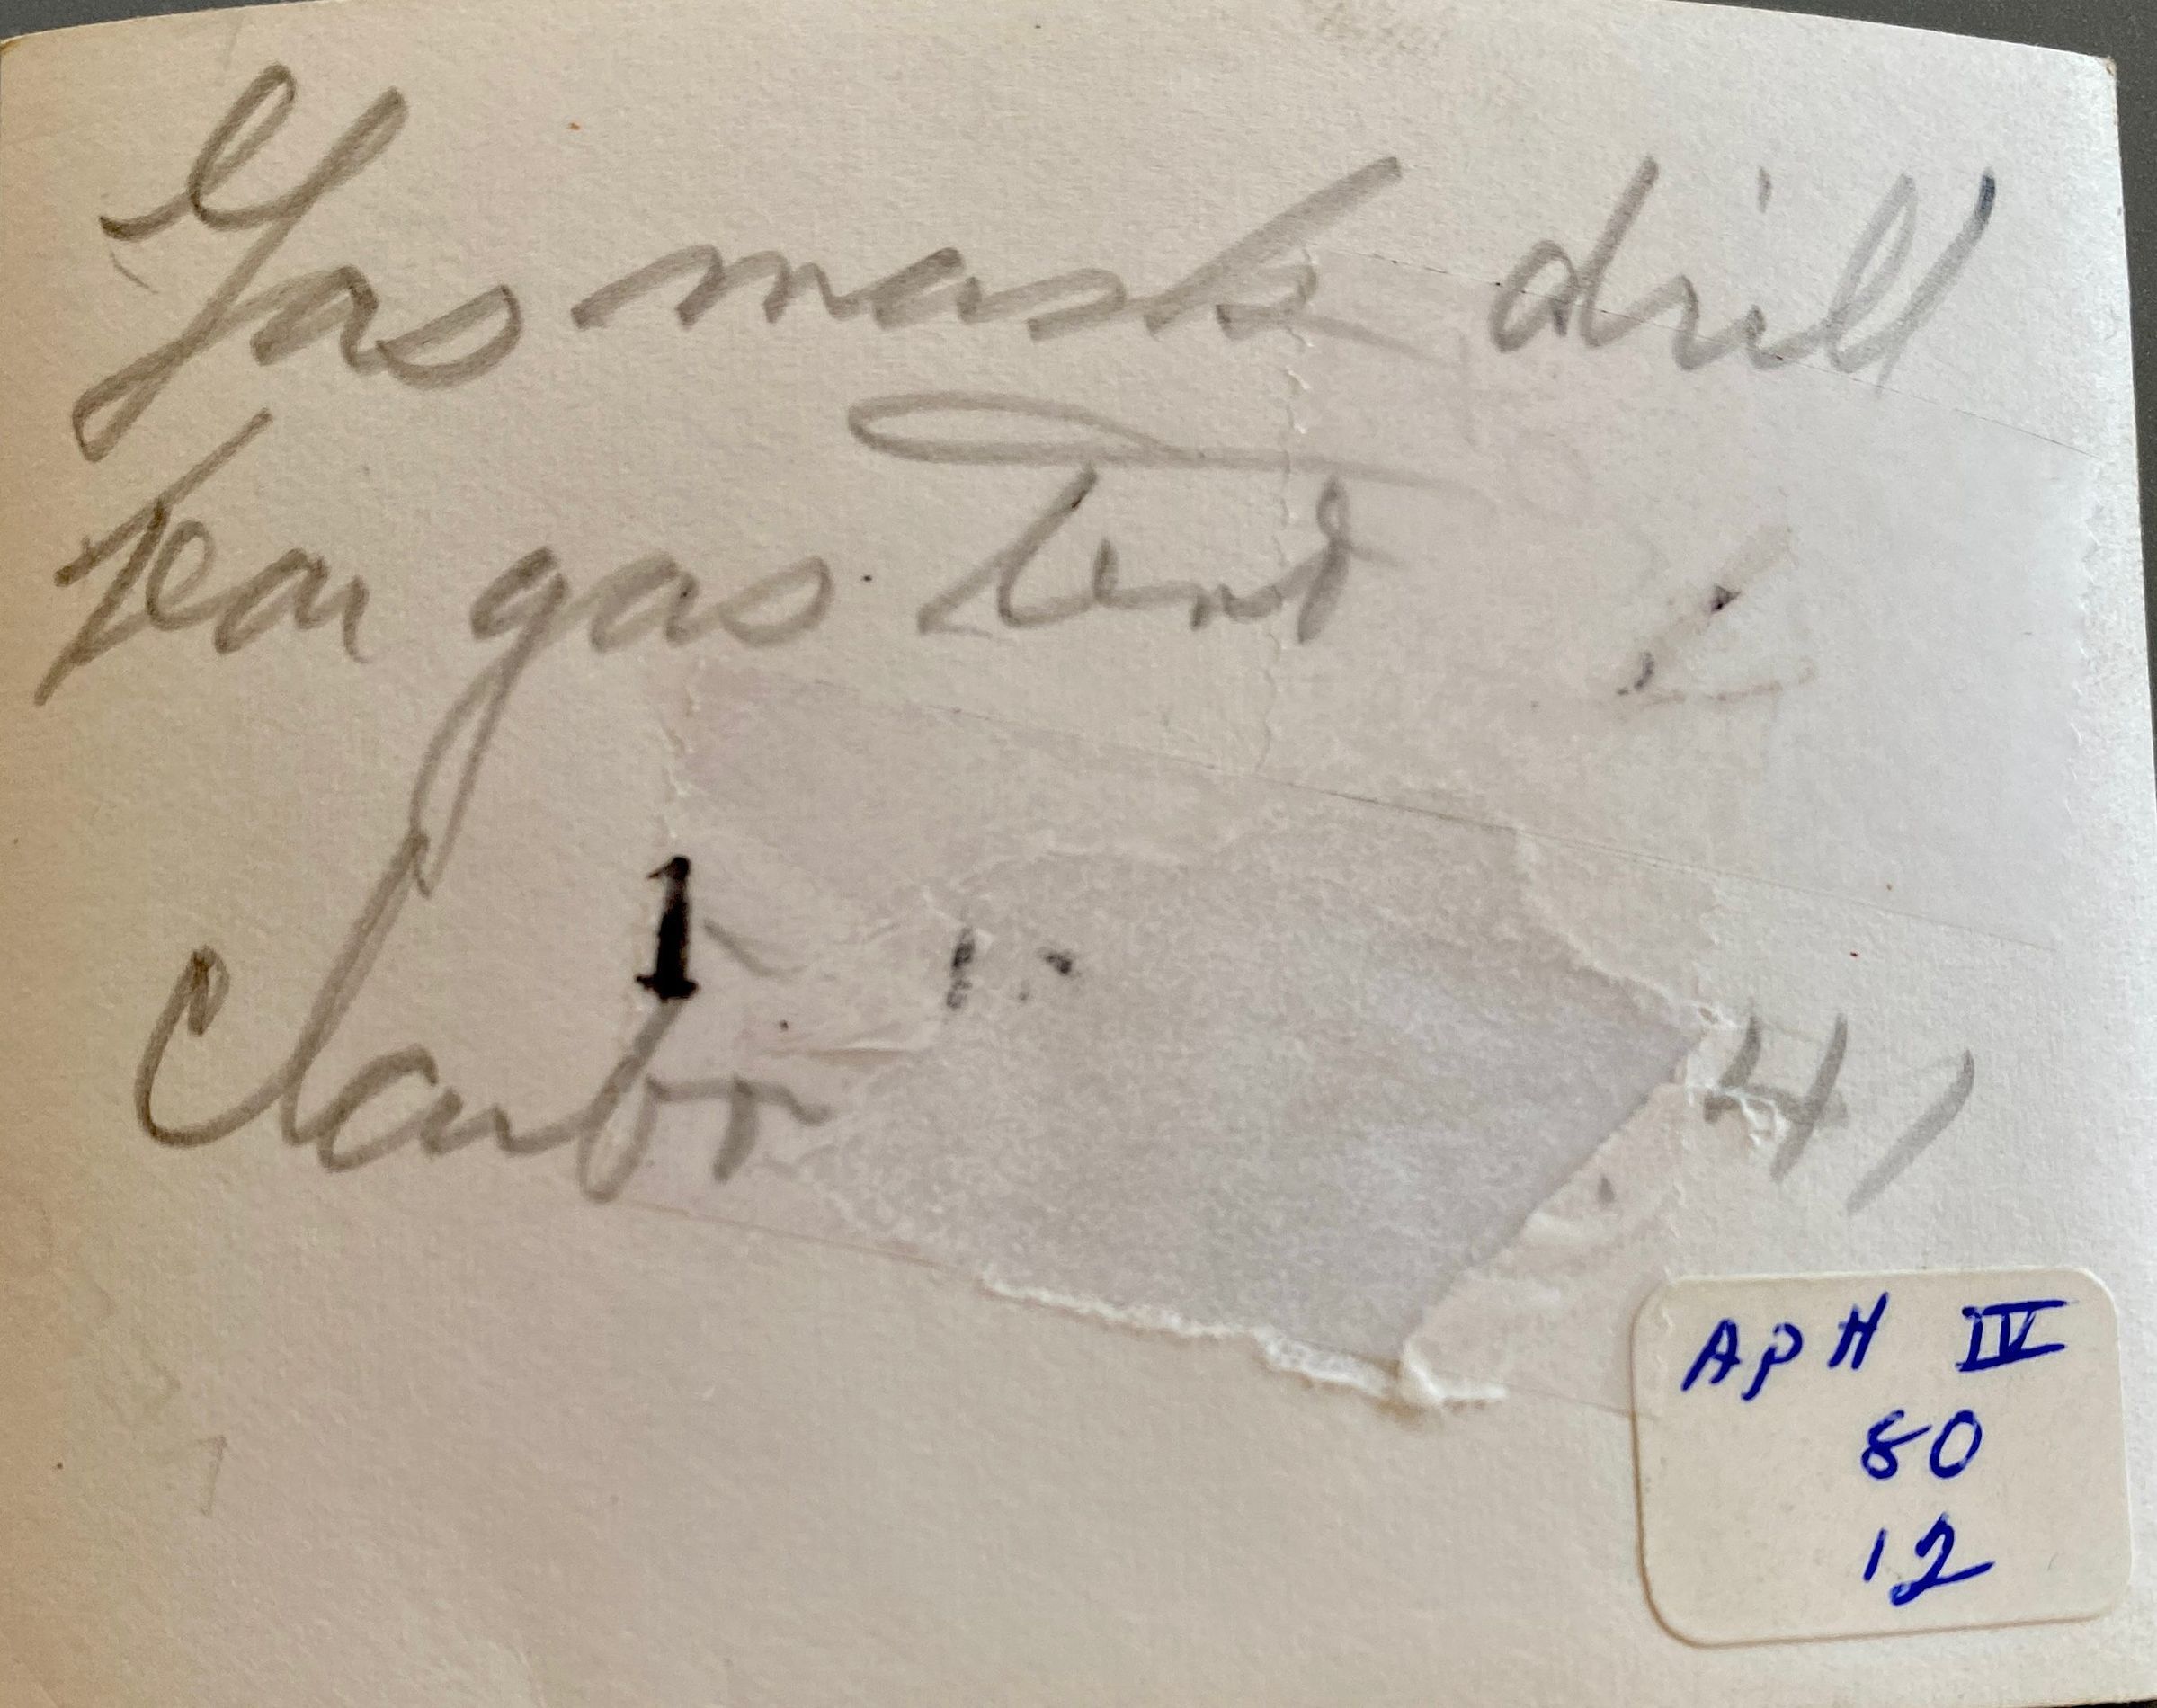 Gas mask drill
tear gas Tent
1
41
APH IV
80
12